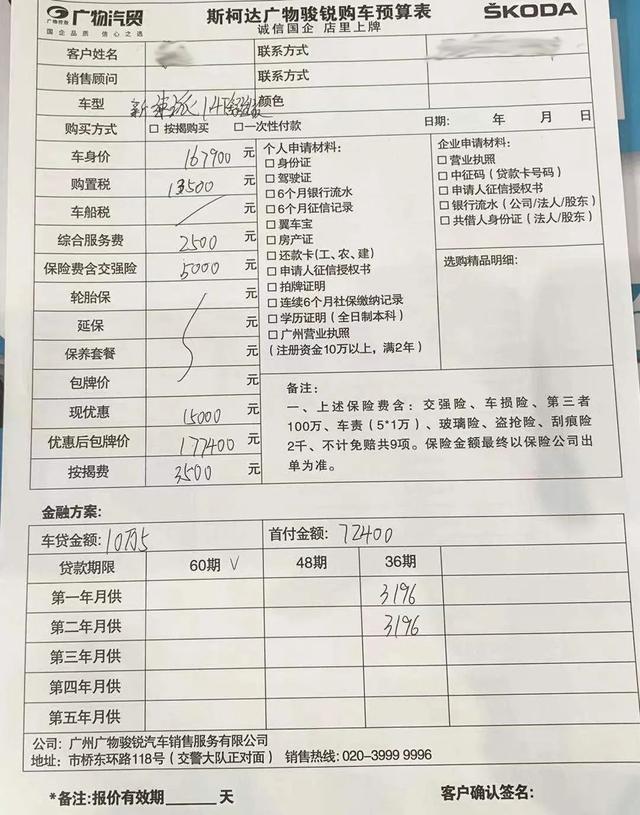 广物汽贸
广物控股 国企品质 信心之选
斯柯达广物骏锐购车预算表
诚信国企 店里上牌
ŠKODA
客户姓名 联系方式
销售顾问 联系方式
车型 新速派 1.4 颜色
购买方式 □ 按揭购买 □一次性付款 日期: 年 月 日
车身价 167900 元
购置税 13500 元
车船税 元
综合服务费 2500 元
保险费含交强险 5000 元
轮胎保 元
延保 元
保养套餐 元
包牌价 元
现优惠 15000 元
优惠后包牌价 177400 元
按揭费 3500 元
个人申请材料:
□ 身份证
□ 驾驶证
□ 6个月银行流水
□ 6个月征信记录
□ 翼车宝
□ 房产证
□ 还款卡(工、农、建)
□ 申请人征信授权书
□ 拍牌证明
□ 连续6个月社保缴纳记录
□ 学历证明(全日制本科)
□ 广州营业执照
(注册资金10万以上,满2年)
企业申请材料:
□ 营业执照
□ 中征码(贷款卡号码)
□ 申请人征信授权书
□ 银行流水(公司/法人/股东)
□ 共借人身份证(法人/股东)
选购精品明细:
备注:
一、上述保险费含:交强险、车损险、第三者
100万、车责(5*1万)、玻璃险、盗抢险、刮痕险
2千、不计免赔共9项。保险金额最终以保险公司出
单为准。
金融方案:
车贷金额: 10万5 首付金额: 72400
贷款期限 60期 V 48期 36期
第一年月供 3196
第二年月供 3196
第三年月供
第四年月供
第五年月供
公司: 广州广物骏锐汽车销售服务有限公司
地址: 市桥东环路118号(交警大队正对面) 销售热线: 020-3999 9996
*备注:报价有效期 天 客户确认签名: